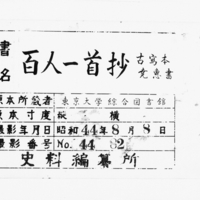 書名 百人一首抄 古写本 覚恵書
原本所蔵者 東京大学綜合図書館
原本寸法 縦・横
撮影年月日 昭和44年8月8日
撮影番号 No.44 82
史料編纂所